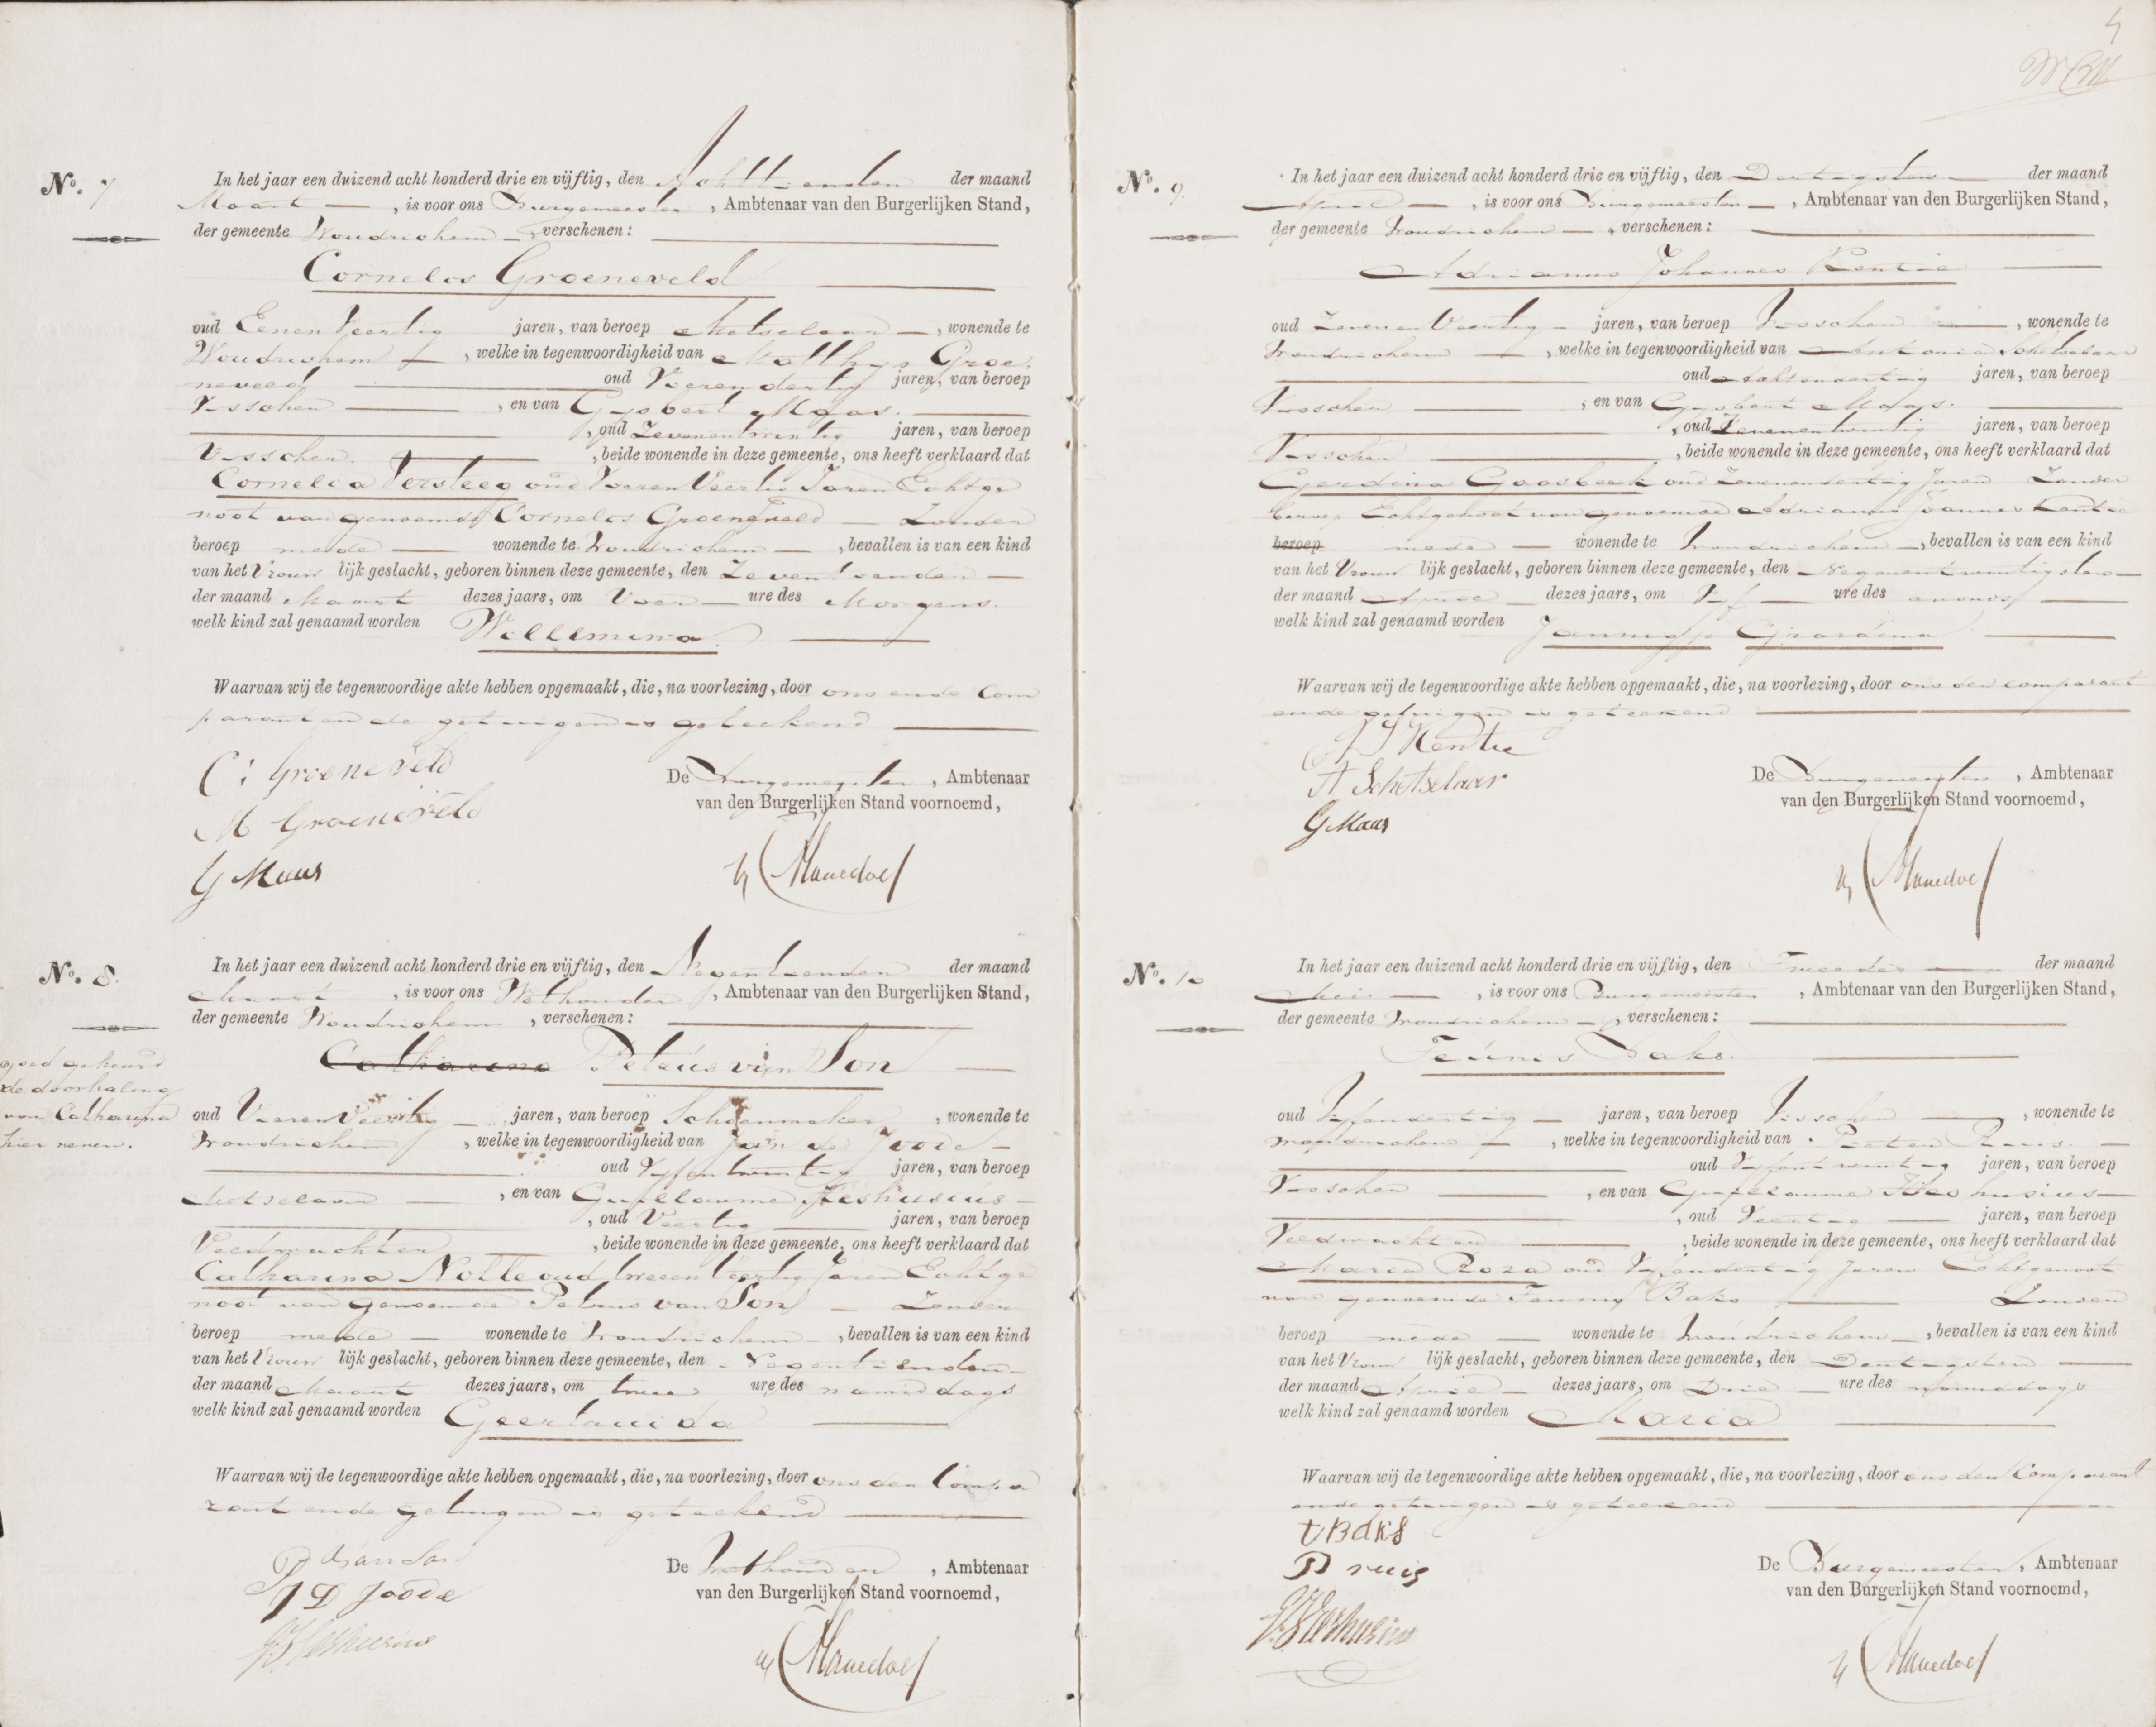 No. 7
In het jaar een duizend acht honderd drie en vijftig, den Achttienden der maand
Maart, is voor ons Burgemeester, Ambtenaar van den Burgerlijken Stand,
der gemeente Woudrichem, verschenen:
Cornelis Groeneveld
oud Eenen Veertig jaren, van beroep Metselaar, wonende te
Woudrichem, welke in tegenwoordigheid van Matthys Groe
neveld oud Vierendertig jaren, van beroep
Visscher, en van Gysbert Maas.
, oud Zevenentwintig jaren, van beroep
Visscher, beide wonende in deze gemeente, ons heeft verklaard dat
Cornelia Versteeg oud Vieren Veertig Jaren Echtge
noot van genoemde Cornelis Groeneveld Zonder
beroep mede wonende te Woudrichem, bevallen is van een kind
van het Vrouw lijk geslacht, geboren binnen deze gemeente, den Zeventienden
der maand Maart dezes jaars, om Vier ure des Morgens.
welk kind zal genaamd worden Willemina
Waarvan wij de tegenwoordige akte hebben opgemaakt, die, na voorlezing, door ons ende Com
parant en de getuigen is geteekend
C: Groeneveld
M Groeneveld
G Maas
De Burgemeester, Ambtenaar
van den Burgerlijken Stand voornoemd,
No. 8.
In het jaar een duizend acht honderd drie en vijftig, den Negentienden der maand
Maart, is voor ons Wethouder, Ambtenaar van den Burgerlijken Stand,
der gemeente Woudrichem, verschenen:
Catharina Petrus van Son
goed gekeurd
de doorhaling
van Catharina
hier neven.
oud Vieren Veertig jaren, van beroep Schoenmaker, wonende te
Woudrichem, welke in tegenwoordigheid van Jan de Joode
oud Vyfentwintig jaren, van beroep
Metselaar, en van Guillaume Heshusius
, oud Veertig jaren, van beroep
Veldwachter, beide wonende in deze gemeente, ons heeft verklaard dat
Catharina Nolte oud tweeen Veertig Jaren Echtge
noot van genoemde Petrus van Son Zonder
beroep mede wonende te Woudrichem, bevallen is van een kind
van het Vrouw lijk geslacht, geboren binnen deze gemeente, den Negentienden
der maand Maart dezes jaars, om twee ure des namiddags
welk kind zal genaamd worden Geertruida
Waarvan wij de tegenwoordige akte hebben opgemaakt, die, na voorlezing, door ons den Compa
rant ende getuigen is geteekend
P van Son
J D Joode
G Heshusius
De Wethouder, Ambtenaar
van den Burgerlijken Stand voornoemd,
No. 9.
In het jaar een duizend acht honderd drie en vijftig, den Dertigsten der maand
April, is voor ons Burgemeester, Ambtenaar van den Burgerlijken Stand,
der gemeente Woudrichem, verschenen:
Adrianus Johannes Kentie
oud Zevenen Veertig jaren, van beroep Visscher, wonende te
Woudrichem, welke in tegenwoordigheid van Antonie Schetselaar
oud Achtendertig jaren, van beroep
Visscher, en van Gysbert Maas.
, oud Zevenentwintig jaren, van beroep
Visscher, beide wonende in deze gemeente, ons heeft verklaard dat
Gerdina Goosbeek oud Zevenendertig Jaren Zonder
beroep Echtgenoot van genoemde Adrianus Joannes Kentie
beroep mede wonende te Woudrichem, bevallen is van een kind
van het Vrouw lijk geslacht, geboren binnen deze gemeente, den Negenentwintigsten
der maand April dezes jaars, om Vyf ure des avonds
welk kind zal genaamd worden Jannigje Gerardina
Waarvan wij de tegenwoordige akte hebben opgemaakt, die, na voorlezing, door ons den comparant
ende getuigen is geteekend
A J Kentie
A Schetselaar
G Maas
De Burgemeester, Ambtenaar
van den Burgerlijken Stand voornoemd,
No. 10
In het jaar een duizend acht honderd drie en vijftig, den Tweeden der maand
Mei, is voor ons Burgemeester, Ambtenaar van den Burgerlijken Stand,
der gemeente Woudrichem, verschenen:
Teunis Baks.
oud Vyfendertig jaren, van beroep Visscher, wonende te
Woudrichem, welke in tegenwoordigheid van Pieter
oud Vyfentwintig jaren, van beroep
Visscher, en van Guillaume Heshusius
, oud Veertig jaren, van beroep
Veldwachter, beide wonende in deze gemeente, ons heeft verklaard dat
Maria Roza oud Vyfendertig Jaren Echtgenoot
van genoemde Teunis Baks Zonder
beroep mede wonende te Woudrichem, bevallen is van een kind
van het Vrouw lijk geslacht, geboren binnen deze gemeente, den Dertigsten
der maand April dezes jaars, om Drie ure des namiddags
welk kind zal genaamd worden Maria
Waarvan wij de tegenwoordige akte hebben opgemaakt, die, na voorlezing, door ons den Comparant
ende getuigen is geteekend
t Baks
G Heshusius
De Burgemeester, Ambtenaar
van den Burgerlijken Stand voornoemd,